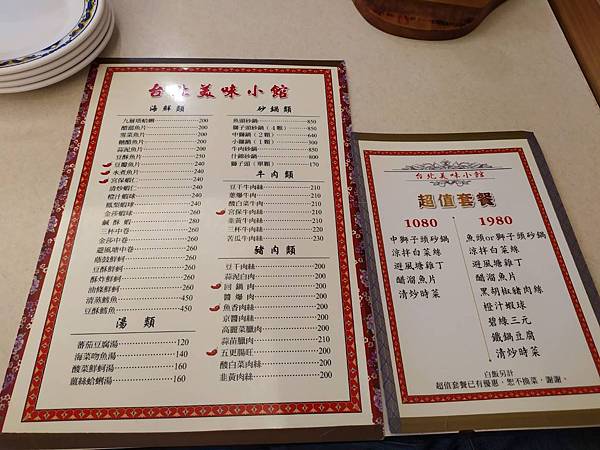 台北美味小館
海鮮類
九層塔蛤蜊 200
醋溜魚片 200
雪菜魚片 200
糖醋魚片 200
蒜泥魚片 200
豆酥魚片 200
豆瓣魚片 240
水煮魚片 240
宮保蝦仁 240
清炒蝦仁 240
橙汁蝦球 240
鳳梨蝦球 240
金莎蝦球 260
鹹酥蝦 260
三杯中卷 260
金莎中卷 260
避風塘中卷 260
蔭豉鮮蚵 260
豆酥鮮蚵 260
酥炸鮮蚵 260
油條鮮蚵 260
清蒸鱈魚 450
豆酥鱈魚 450
湯類
蕃茄豆腐湯 120
海菜吻魚湯 160
酸菜鮮蚵湯 160
薑絲蛤蜊湯 160
砂鍋類
魚頭砂鍋 850
獅子頭砂鍋(4顆) 850
中獅鍋(2顆) 640
小獅鍋(1顆) 300
牛肉砂鍋 550
什錦砂鍋 550
獅子頭(單顆) 170
牛肉類
豆干牛肉絲 210
蔥爆牛肉 210
酸白菜牛肉 210
宮保牛肉絲 210
韭黃牛肉絲 210
三杯牛肉絲 220
苦瓜牛肉絲 220
豬肉類
豆干肉絲 200
蒜泥白肉 200
回鍋肉 200
醬爆肉 200
魚香肉絲 200
京醬肉絲 200
高麗菜臘肉 200
蒜苗臘肉 200
五更腸旺 200
酸白菜肉絲 200
韭黃肉絲 200
台北美味小館
超值套餐
1080
中獅子頭砂鍋
涼拌白菜絲
避風塘雞丁
醋溜魚片
清炒時菜
1980
魚頭or獅子頭砂鍋
涼拌白菜絲
避風塘雞丁
醋溜魚片
黑胡椒豬肉絲
橙汁蝦球
碧綠三元
鐵鍋豆腐
清炒時菜
白飯另計
超值套餐已有優惠，恕不換菜，謝謝。